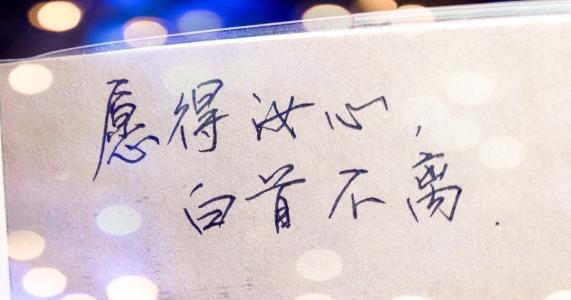 愿得汝心,
白首不离.